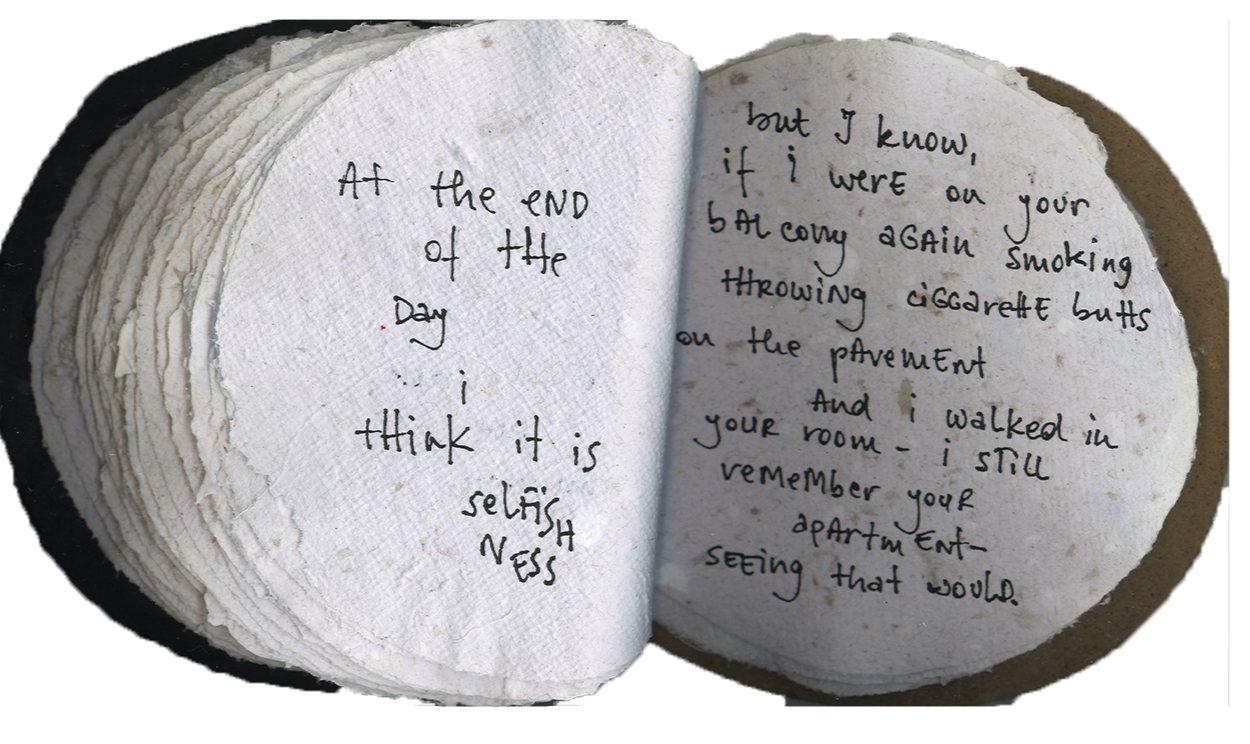 At the END
of the
Day
i
think it is
selfisH
NESS
but I know,
if i werE on your
bALcony aGAin smoking
tHROwiNg ciGGaretTE butts
on the pAvemEnt
And i walked in
youR room - i sTiLL
remeMber youR
apArtmEnt-
sEEing that wouLD.